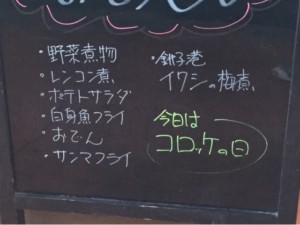 ・野菜煮物
・レンコン煮
・ポテトサラダ
・白身魚フライ
・おでん
・サンマフライ
・銚子港
イワシの梅煮
今日は
コロッケの日